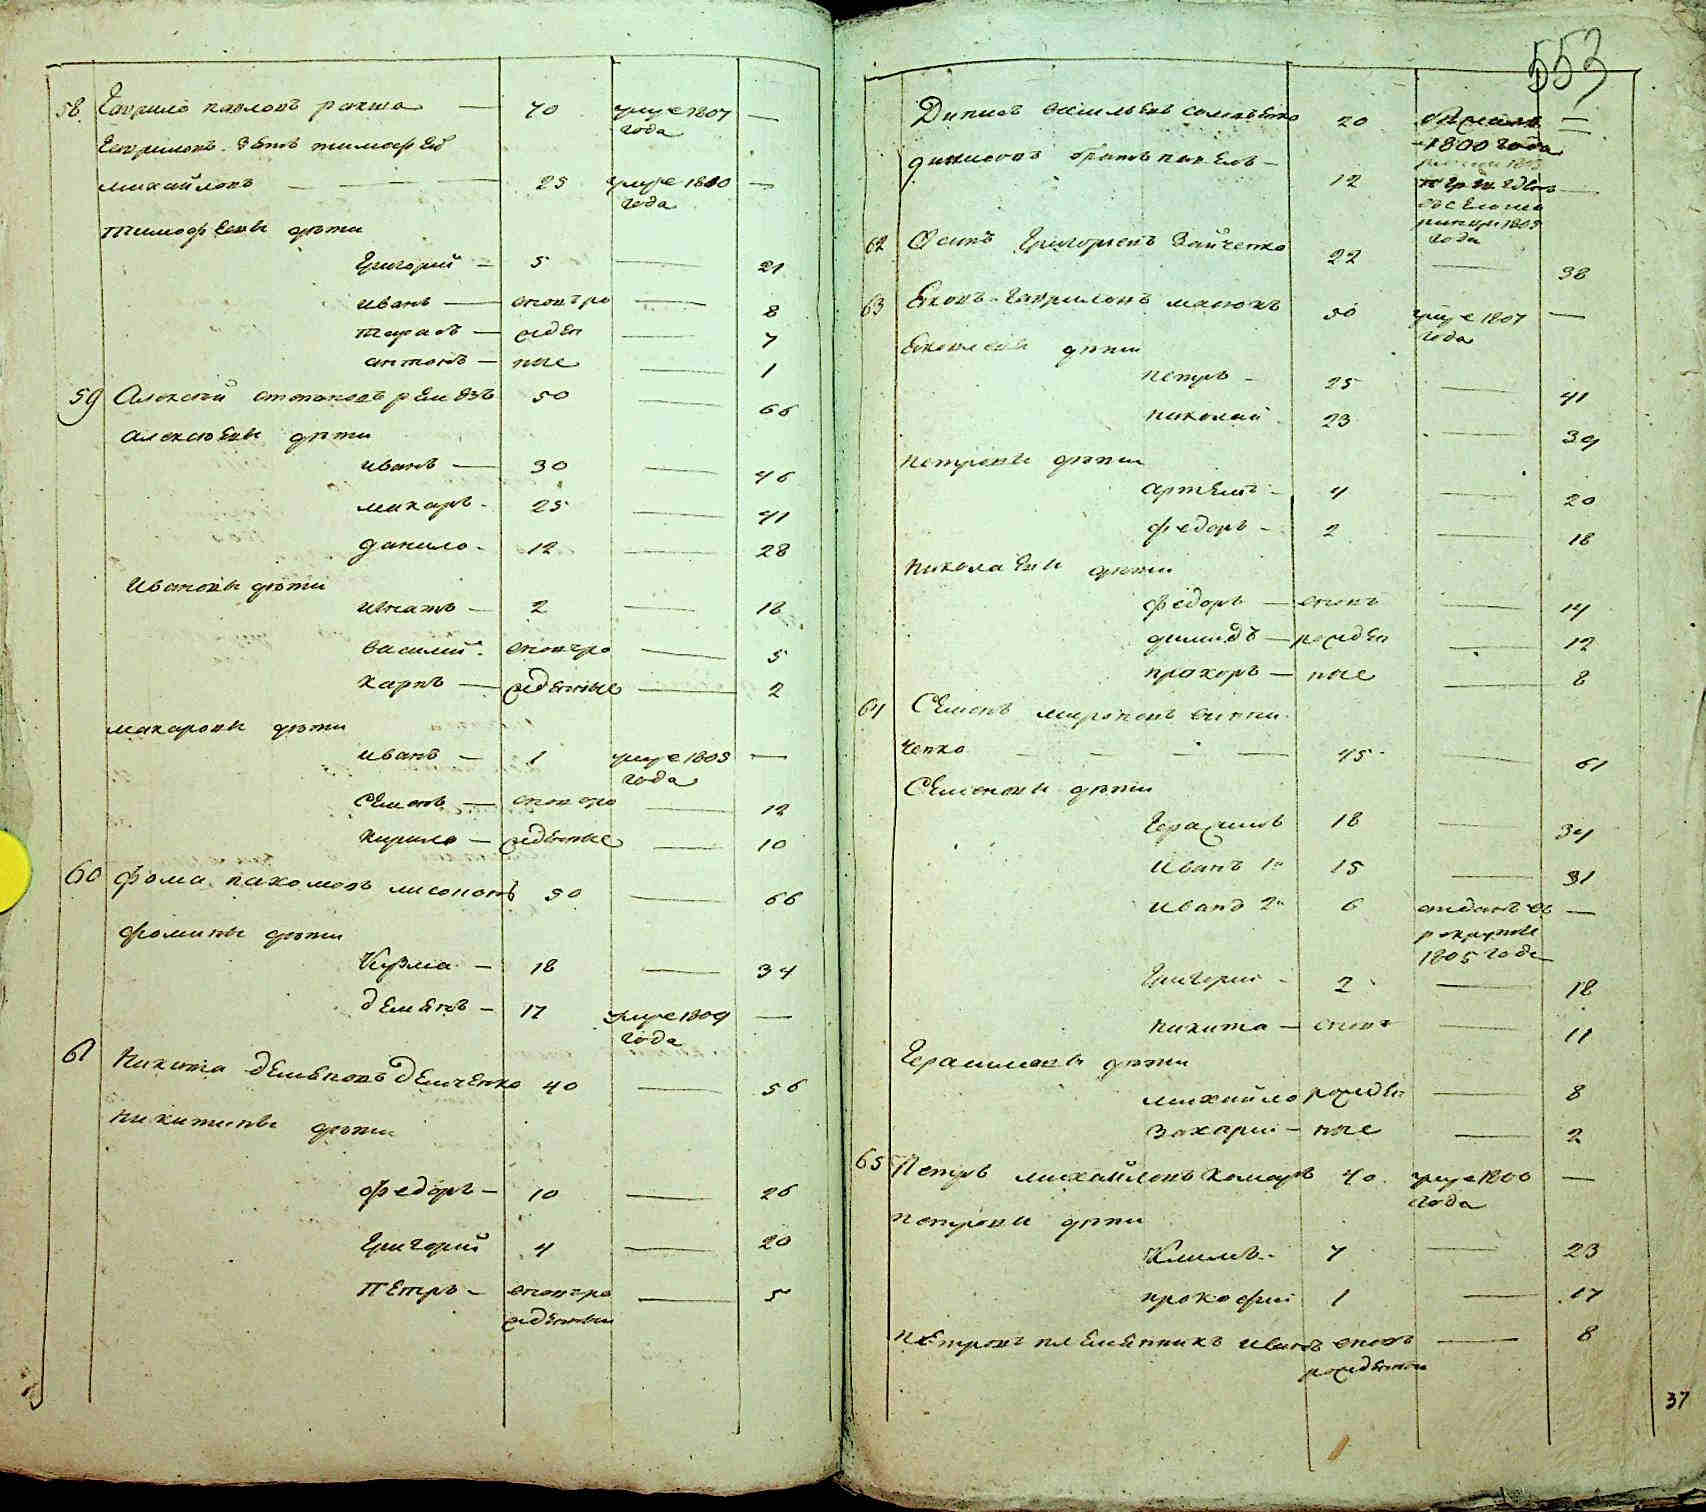 58 Гаврило павловъ ракша — 70 умре 1807 года —
Гавриловъ зять тимофей
михайловъ — 25 умре 1810 года —
тимофеевы дѣти
Григорий — 5 — 21
иванъ — вновь ро — 8
тарасъ — жден — 7
антонъ — ные — 1
59 Алексѣй степановъ ремезъ 50 — 66
алексѣевы дѣти
иванъ — 30 — 46
макаръ — 25 — 41
данило — 12 — 28
Ивановы дѣти
игнатъ — 2 — 18
василий — вновь ро — 5
карпъ — жденные — 2
макаровы дѣти
иванъ — 1 умре 1805 года —
Семенъ — вновь ро — 12
кирило — жденные — 10
60 фома пахомовъ лисоконь 50 — 66
фомины дѣти
Кузма — 18 — 34
демянъ — 17 умре 1809 года —
61 Никита демяновъ демченко 40 — 56
никитины дѣти
федоръ — 10 — 26
Григорий 4 — 20
Петръ — вновь ро — 5
жденный
553
Денисъ васильевъ 20
1800 года
денисовъ братъ павелъ — 12 —
года
62 Осипъ Григорьевъ Зайченко 22 — 38
63 Яковъ Гавриловъ масюкъ 50 умре 1807 года —
Яковлевы дѣти
петръ — 25 — 41
николай 23 — 39
петровы дѣти
артемъ — 4 — 20
федоръ — 2 — 18
николаевы дѣти
федоръ — вновь — 14
демидъ — рожден — 12
прохоръ — ные — 8
64 Семенъ мироновъ винни
ченко — 45 — 61
Семеновы дѣти
Герасимъ 18 — 34
Иванъ 1й 15 — 31
Иванъ 2й 6 отданъ въ —
рекруты
1805 года
Григорий — 2 — 18
никита — вновь — 11
Герасимовы дѣти
михайло рожден — 8
Захарий — ные — 2
65 Петръ михайловъ Комаръ 40 умре 1806 года —
петровы дѣти
Климъ — 7 — 23
прокофий 1 — 17
петровъ племянникъ иванъ вновь — 8
рожденный
37